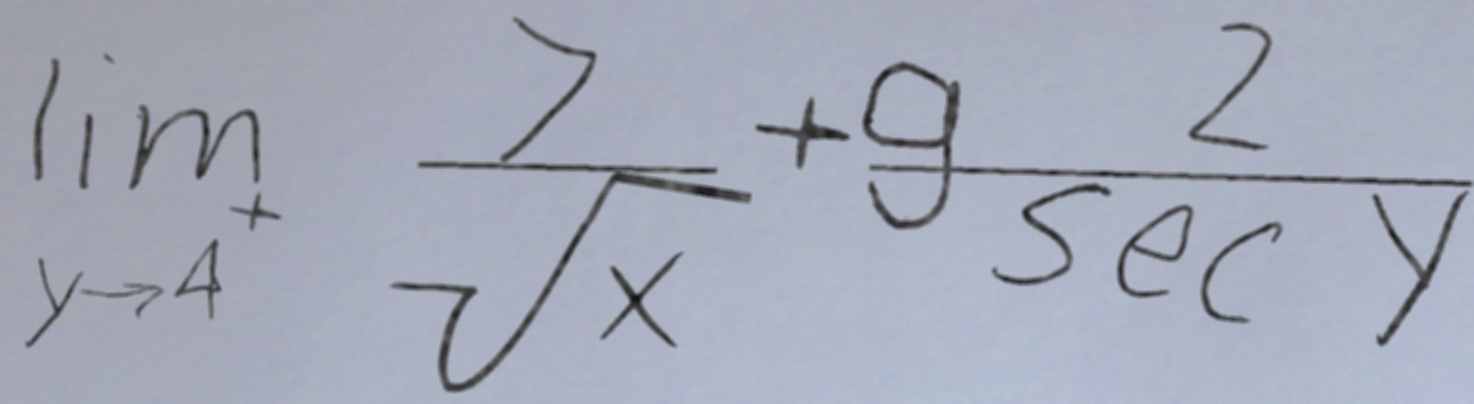 \lim_{y \to 4^+} \frac{7}{\sqrt{x}} + 9\frac{2}{\sec y}